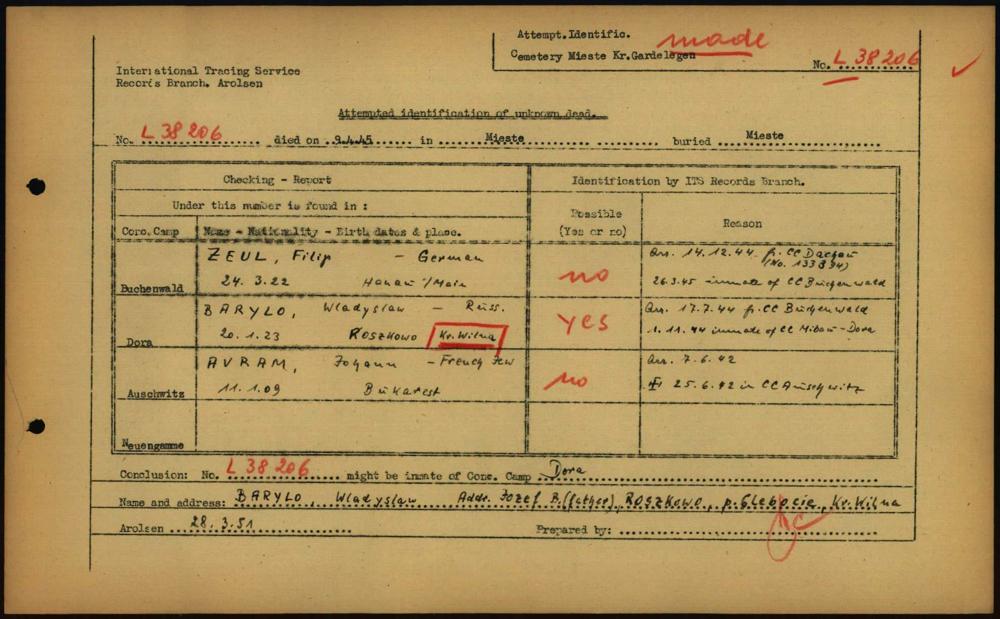 Attempt. Identific. made
Cemetery Mieste Kr. Gardelegen
No. L 38 206
International Tracing Service
Records Branch. Arolsen
Attempted identification of unknown dead.
No. L 38 206 died on 9.4.45 in Mieste buried Mieste
Checking - Report Identification by ITS Records Branch.
Under this number is found in :
Conc. Camp Name - Nationality - Birth dates & place. Possible (Yes or no) Reason
ZEUL, Filip - German Arr. 14.12.44 fr. CC Dachau
(No. 133894)
Buchenwald 24.3.22 Hanau/Main no 26.3.45 inmate of CC Buchenwald
BARYLO, Wladyslaw - Russ. Arr. 17.7.44 fr. CC Buchenwald
Dora 20.1.23 ROSZKOWO Kr. Wilna yes 1.11.44 inmate of CC Mibau-Dora
AVRAM, Johann - French Jew Arr. 7.6.42
Auschwitz 11.1.09 Bukarest no 25.6.42 in CC Auschwitz
Neuengamme
Conclusion: No. L 38 206 might be inmate of Conc. Camp Dora
Name and address: BARYLO, Wladyslaw Addr. Jozef B. (father), ROSZKOWO, p. Glebocie, Kr. Wilna
Arolsen 28.3.51 Prepared by: